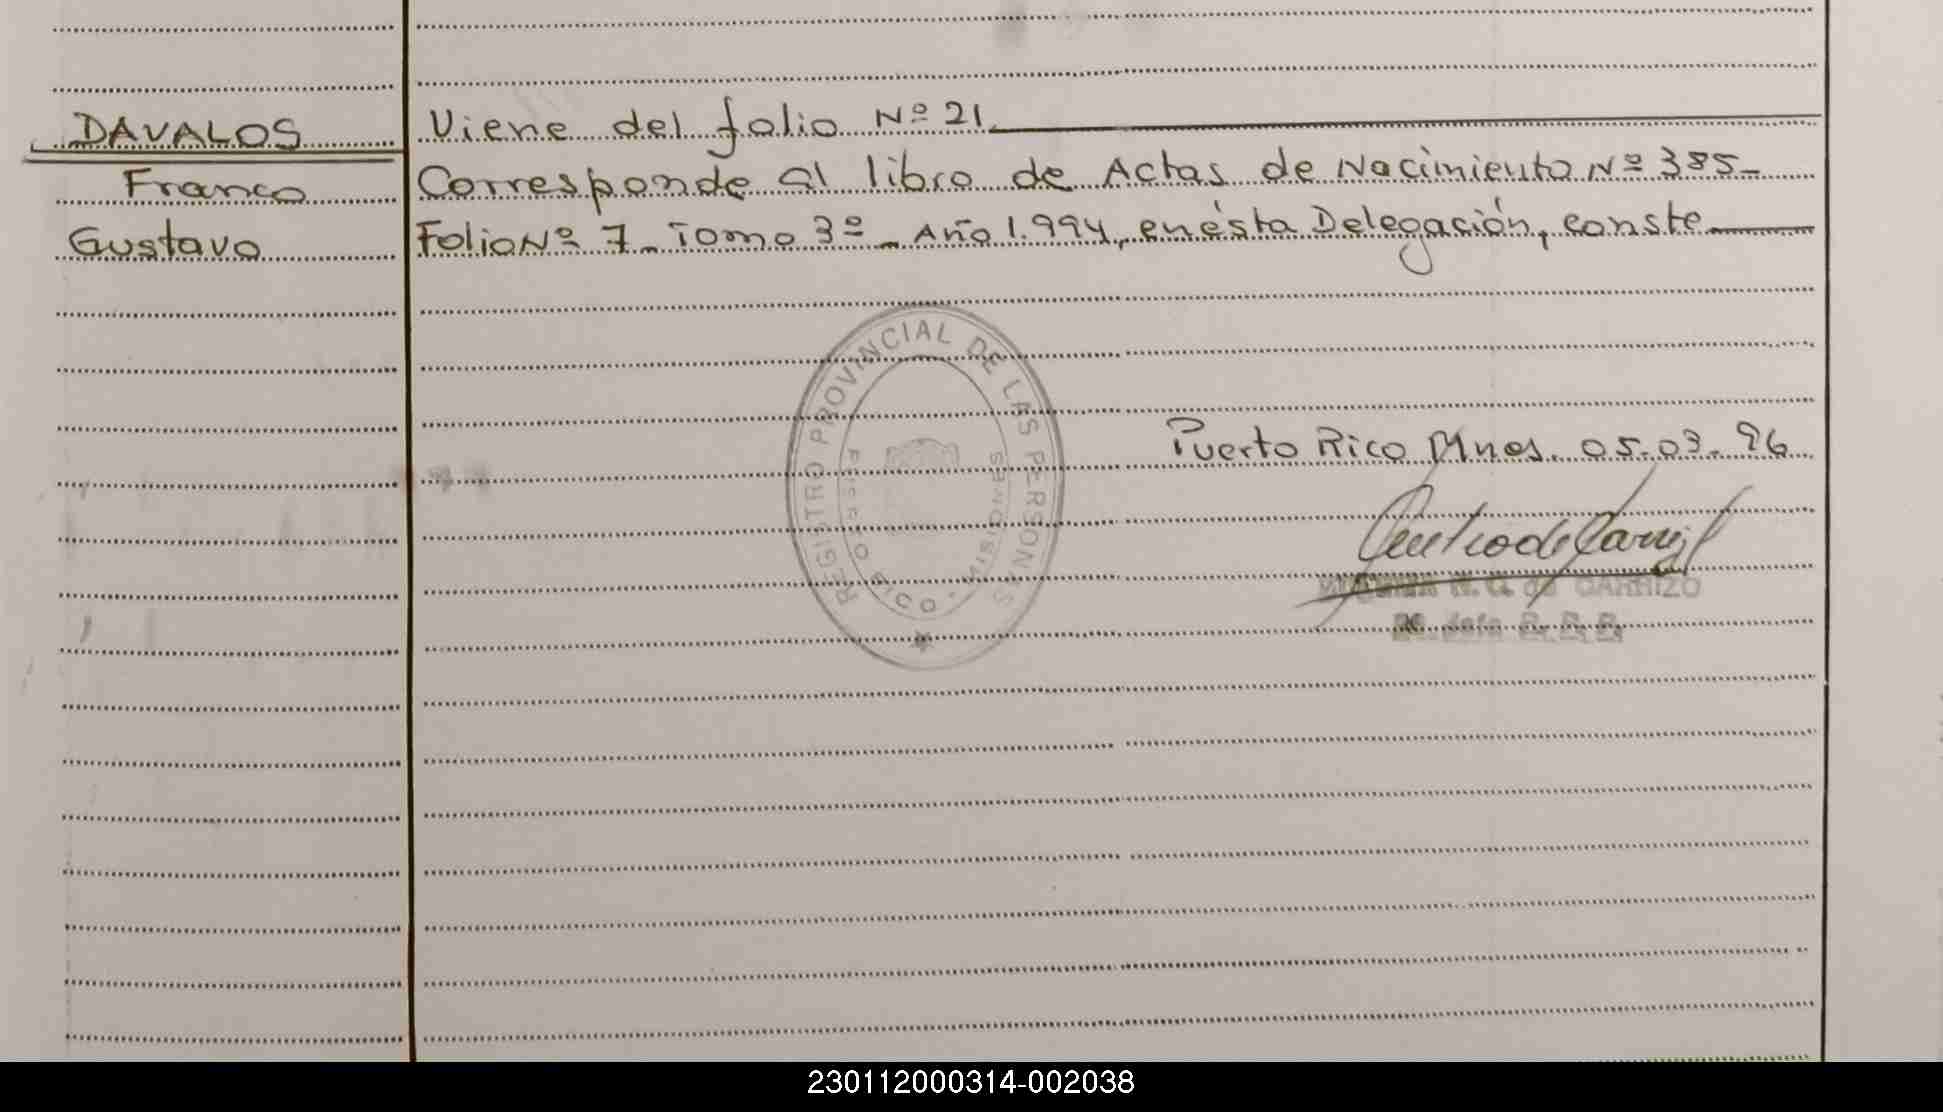 DAVALOS
Franco
Gustavo
Viene del folio Nº 21
Corresponde al libro de Actas de Nacimiento Nº 385-
Folio Nº 7 - Tomo 3º - Año 1.994, en ésta Delegación, conste
REGISTRO PROVINCIAL DE LAS PERSONAS
RICO - MISIONES
Puerto Rico Mnes. 05-03-96
de CARRIZO
230112000314-002038